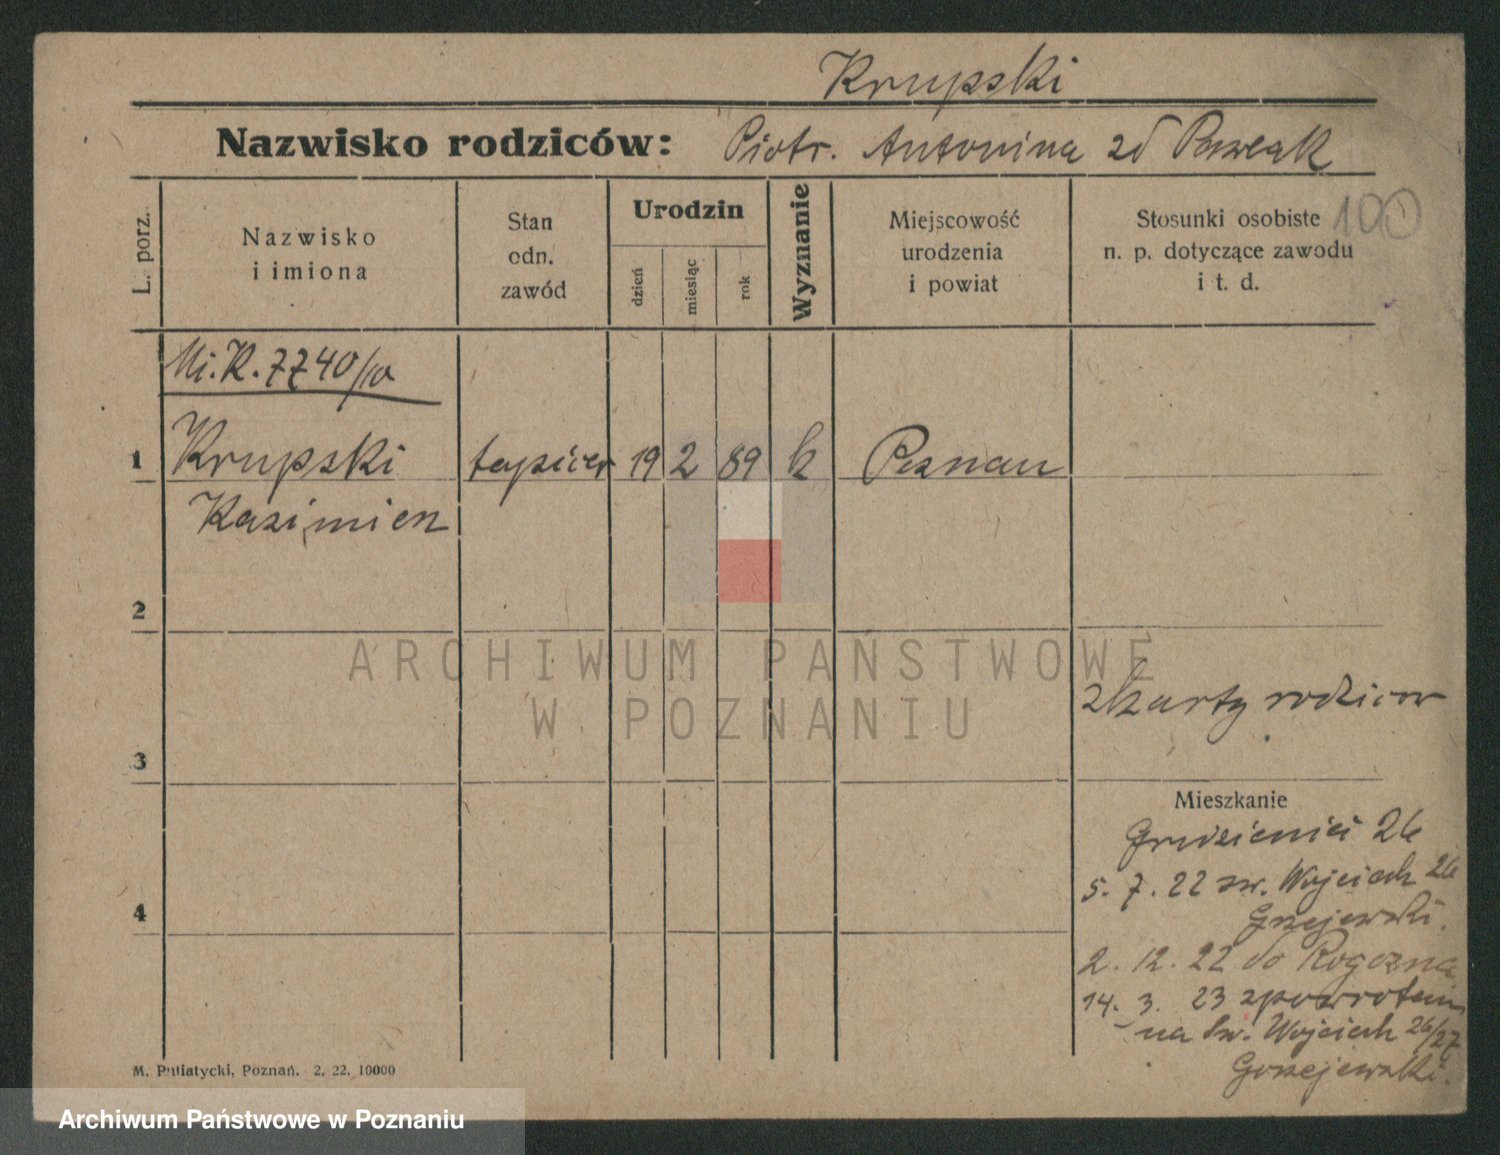 Krupski
Nazwisko rodziców: Piotr. Antonina zd Pawlak
L. porz.
Nazwisko
i imiona
Stan
odn.
zawód
Urodzin
dzień
miesiąc
rok
Wyznanie
Miejscowość
urodzenia
i powiat
Stosunki osobiste
n. p. dotyczące zawodu
i t. d.
100
Mi. K. 7740/10
1 Krupski tapicer 19 2 89 k Poznan
Kazimierz
2
ARCHIWUM PAŃSTWOWE
W POZNANIU
z karty rodzicow
3
Mieszkanie
Grudzieniec 26
5. 7. 22 sw. Wojciech 26
4
2. 12. 22 do Rogozna
14. 3. 23 zpowrotem
na Sw. Wojciech 26/27
M. Putiatycki, Poznań. 2. 22. 10000
Archiwum Państwowe w Poznaniu